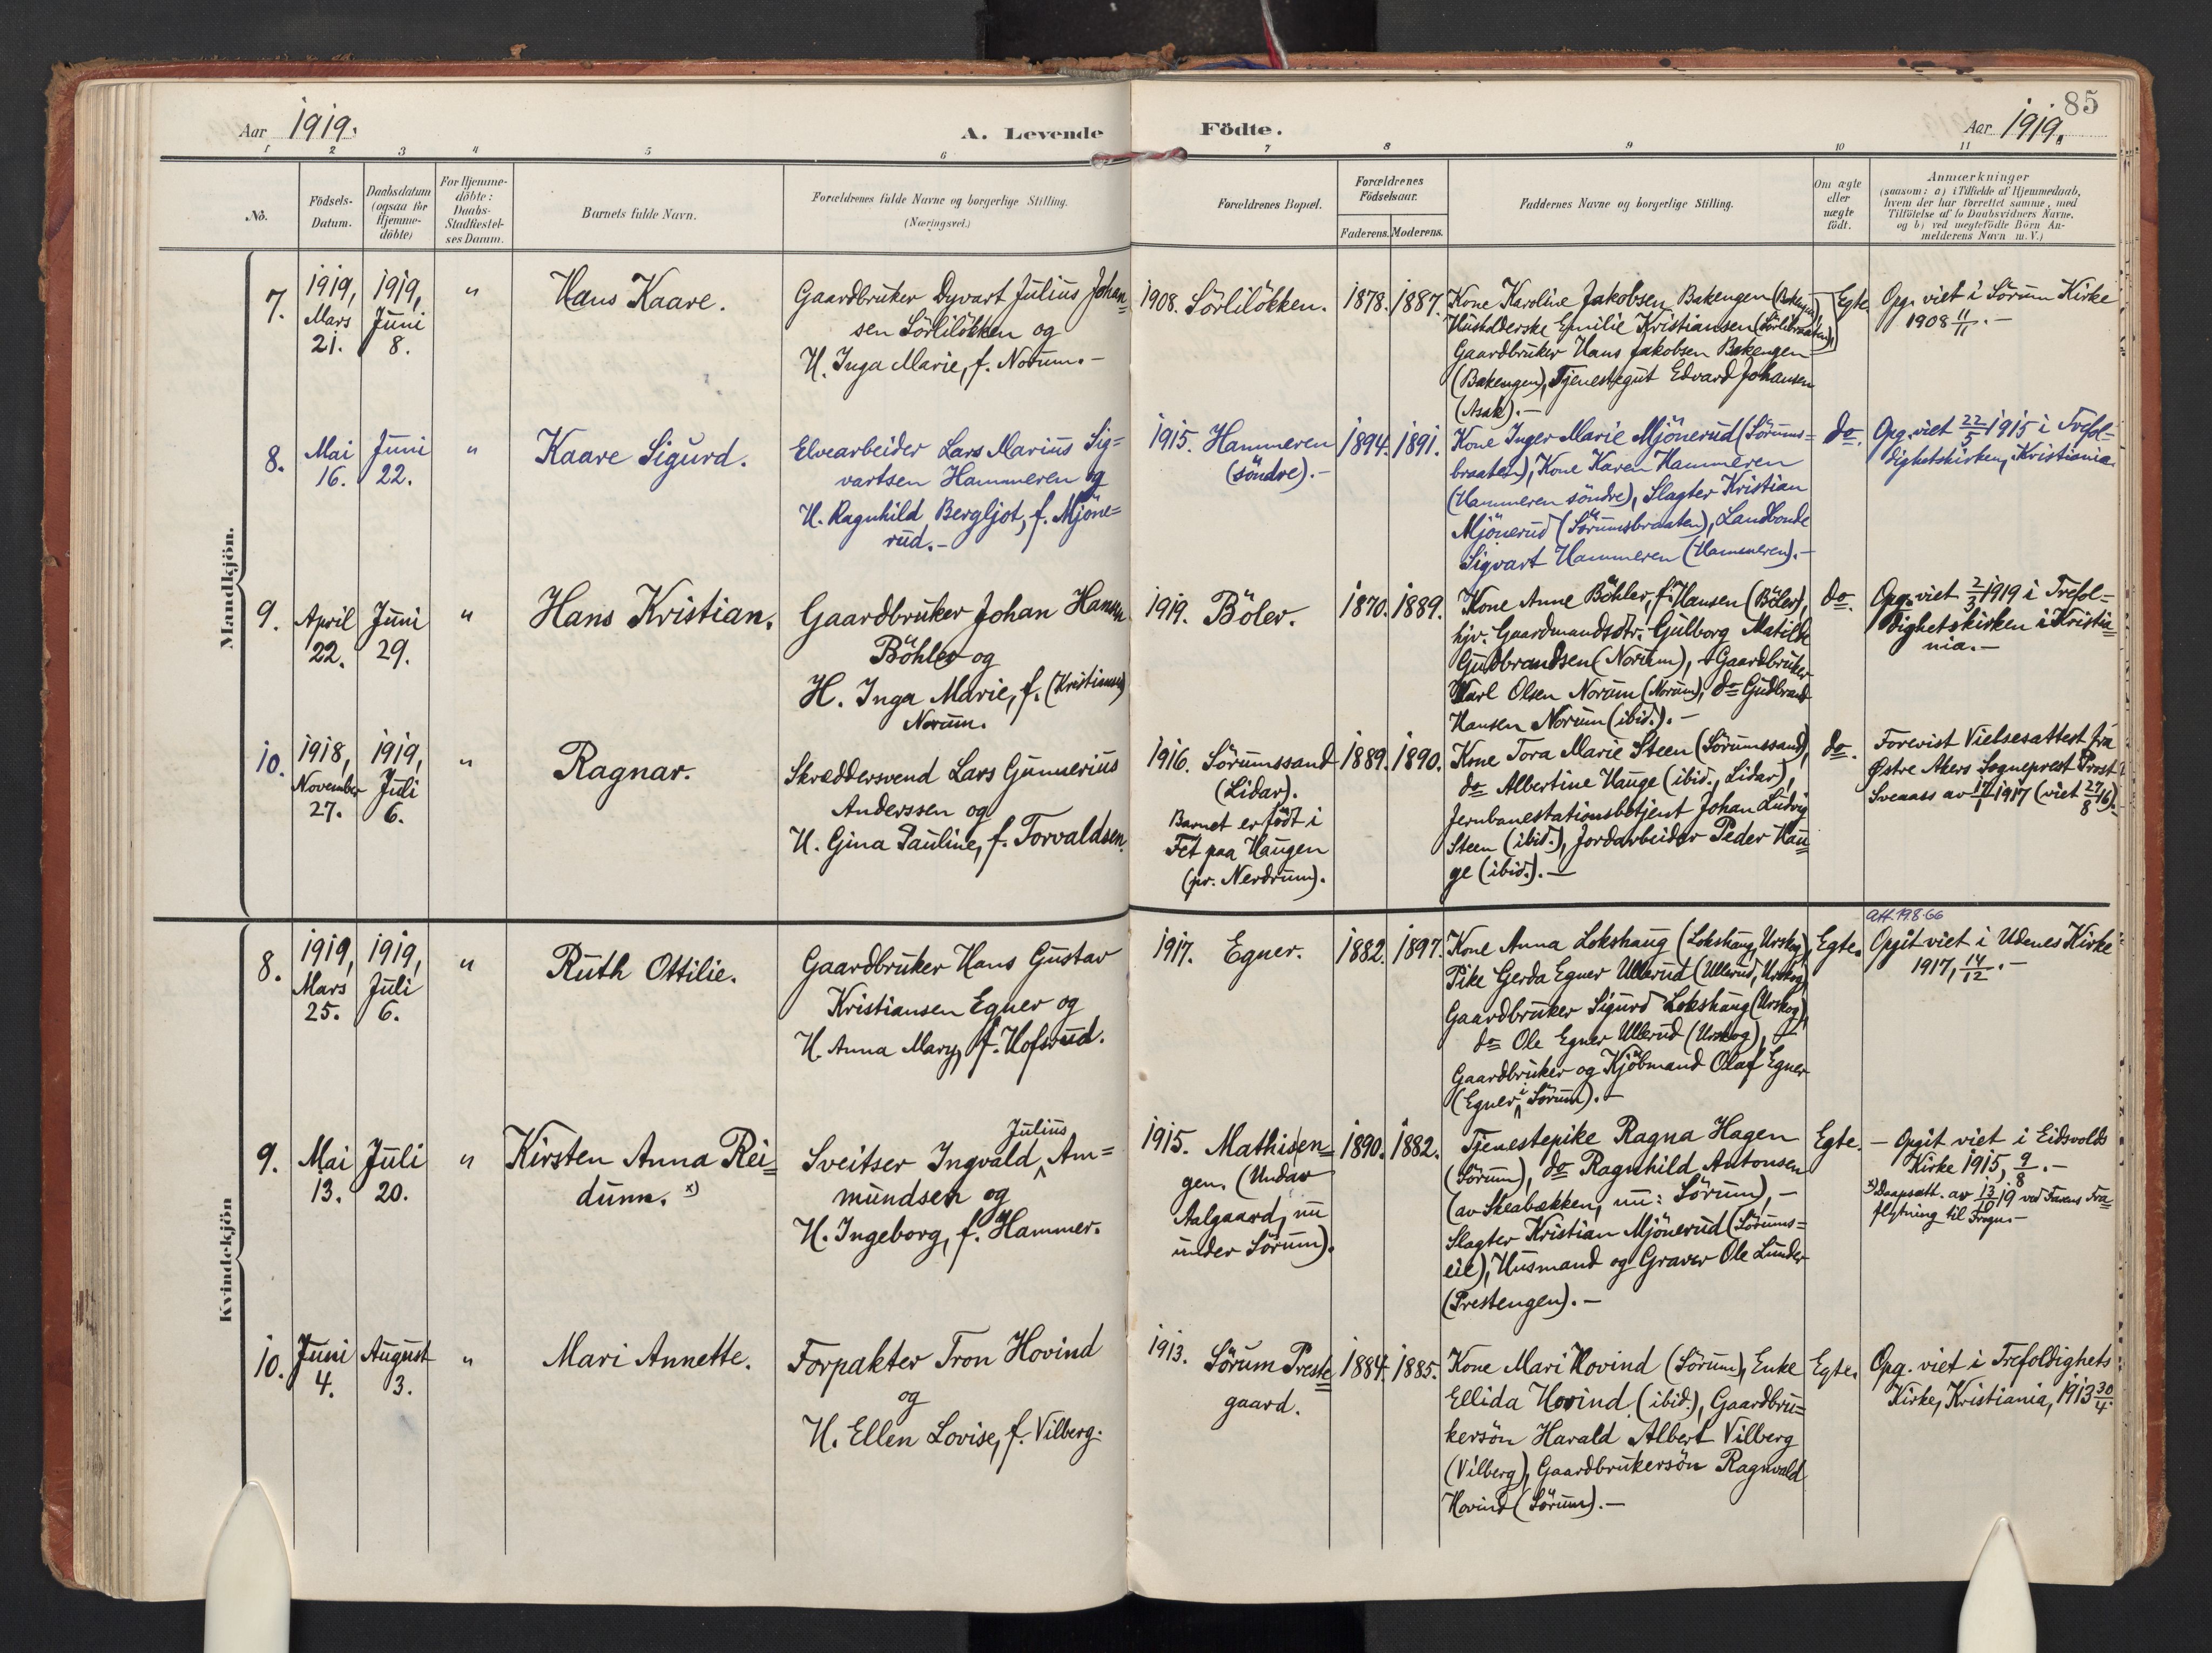 85
Aar 1919.
A. Levende Födte.
Aar 1919.
1 2 3 4 5 6 7 8 9 10 11
No.
Födsels-
Datum.
Daabsdatum
(ogsaa for
Hjemme-
döbte)
For Hjemme-
döbte:
Daabs-
Stadfæstel-
ses Datum.
Barnets fulde Navn.
Forældrenes fulde Navne og borgerlige Stilling.
(Næringsvei.)
Forældrenes Bopæl.
Forældrenes
Födselsaar.
Faderens. Moderens.
Faddernes Navne og borgerlige Stilling.
Om ægte
eller
uægte
födt.
Anmærkninger
(saasom: a) i Tilfælde af Hjemmedaab,
hvem der har forrettet samme, med
Tilföielse af to Daabsvidners Navne.
og b) ved uægtefödte Börn An-
melderens Navn m. V.)
Mandkjön.
7.
1919,
Mars
21.
1919,
Juni
8.
"
Hans Kaare.
Gaardbruker Dyvart Julius Johan=
sen Sörliløkken og
H. Inga Marie, f. Norum. -
1908. Sörlilökken.
1878. 1887.
Kone Karoline Jakobsen Bakengen (Bakengen)
Husholderske Emilie Kristiansen (Sörlibraaten),
Gaardbruker Hans Jakobsen Bakengen
(Bakengen), Tjenestegut Edvard Johansen
(Asak). -
Egte.
Opg. viet i Sörum Kirke
1908 11/11. -
8.
Mai
16.
Juni
22.
"
Kaare Sigurd.
Elvearbeider Lars Marius Sig=
vartsen Hammeren og
H. Ragnhild Bergljot, f. Mjöne=
rud. -
1915. Hammeren
(söndre). -
1894. 1891.
Kone Inger Marie Mjönerud (Sörums=
braaten), Kone Karen Hammeren
(Hammeren söndre), Slagter Kristian
Mjönerud (Sörumsbraaten), Landbonde
Sigvart Hammeren (Hammeren). -
do.
Opg. viet 22/5 1915 i Trefol=
dighetskirken, Kristiania.
9.
April
22.
Juni
29.
"
Hans Kristian.
Gaardbruker Johan Hansen
Böhler og
H. Inga Marie, f. (Kristiansen)
Norum.
1919. Böler.
1870. 1889.
Kone Anne Böhler, f. Hansen (Böler),
hjv. Gaardmandsdtr. Gulborg Matilde
Gudbrandsen (Norum), Gaardbruker
Karl Olsen Norum (Norum), do Gudbrand
Hansen Norum (ibid.). -
do.
Opg. viet 2/3 1919 i Trefol=
dighetskirken i Kristia=
nia. -
10.
1918,
November
27.
1919,
Juli
6.
"
Ragnar.
Skræddersvend Lars Gunnerius
Anderssen og
H. Gina Pauline, f. Torvaldsen.
1916. Sörumssand
(Lidar).
Barnet er födt i
Fet paa Haugen
(pr. Nerdrum).
1889. 1890.
Kone Tora Marie Steen (Sörumssand),
do Albertine Hauge (ibid., Lidar),
Jernbanestationsbetjent Johan Ludvig
Steen (ibid.), Jordarbeider Peder Hau=
ge (ibid.). -
do.
Forevist Vielsesattest fra
Østre Akers Sogneprest Prost
Sveaass av 17/1 1917 (viet 27/8 16).
Kvindekjön
8.
1919,
Mars
25.
1919,
Juli
6.
"
Ruth Ottilie.
Gaardbruker Hans Gustav
Kristiansen Egner og
H. Anna Mary, f. Hofsrud.
1917. Egner.
1882. 1897.
Kone Anna Lokshaug (Lokshaug, Urskog),
Pike Gerda Egner Ullerud (Ullerud, Urskog),
Gaardbruker Sigurd Lokshaug (Urskog),
do Ole Egner Ullerud (Urskog), -
Gaardbruker og Kjöbmand Olaf Egner
(Egner i Sörum). -
Egte.
Att. 19.8.66
Opgit viet i Udenes Kirke
1917, 14/12. -
9.
Mai
13.
Juli
20.
"
Kirsten Anna Rei=
dunn. x)
Sveitser Ingvald Julius Am=
mundsen og
H. Ingeborg, f. Hammer.
1915. Mathisen=
gen. (Under
Aalgaard, nu
under Sörum).
1890. 1882.
Tjenestepike Ragna Hagen
(Sörum), do Ragnhild Antonsen
(av Skeabækken, nu: Sörum), -
Slagter Kristian Mjönerud (Sörums=
eie), Husmand og Graver Ole Lunder
(Prestengen). -
Egte.
- Opgit viet i Eidsvolds
Kirke 1915, 9/8. -
x) Daapsatt. av 13/10 19 ved Faens Fra=
flytning til Frogn. -
10.
Juni
4.
August
3.
"
Mari Annette.
Forpakter Tron Hovind
og
H. Ellen Lovise, f. Vilberg.
1913. Sörum Preste=
gaard.
1884. 1885.
Kone Mari Hovind (Sörum), Enke
Ellida Hovind (ibid.), Gaardbru=
kersön Harald Albert Vilberg
(Vilberg), Gaardbrukersön Ragnvald
Hovind (Sörum). -
Egte.
Opg. viet i Trefoldighets
Kirke, Kristiania, 1913 30/4.